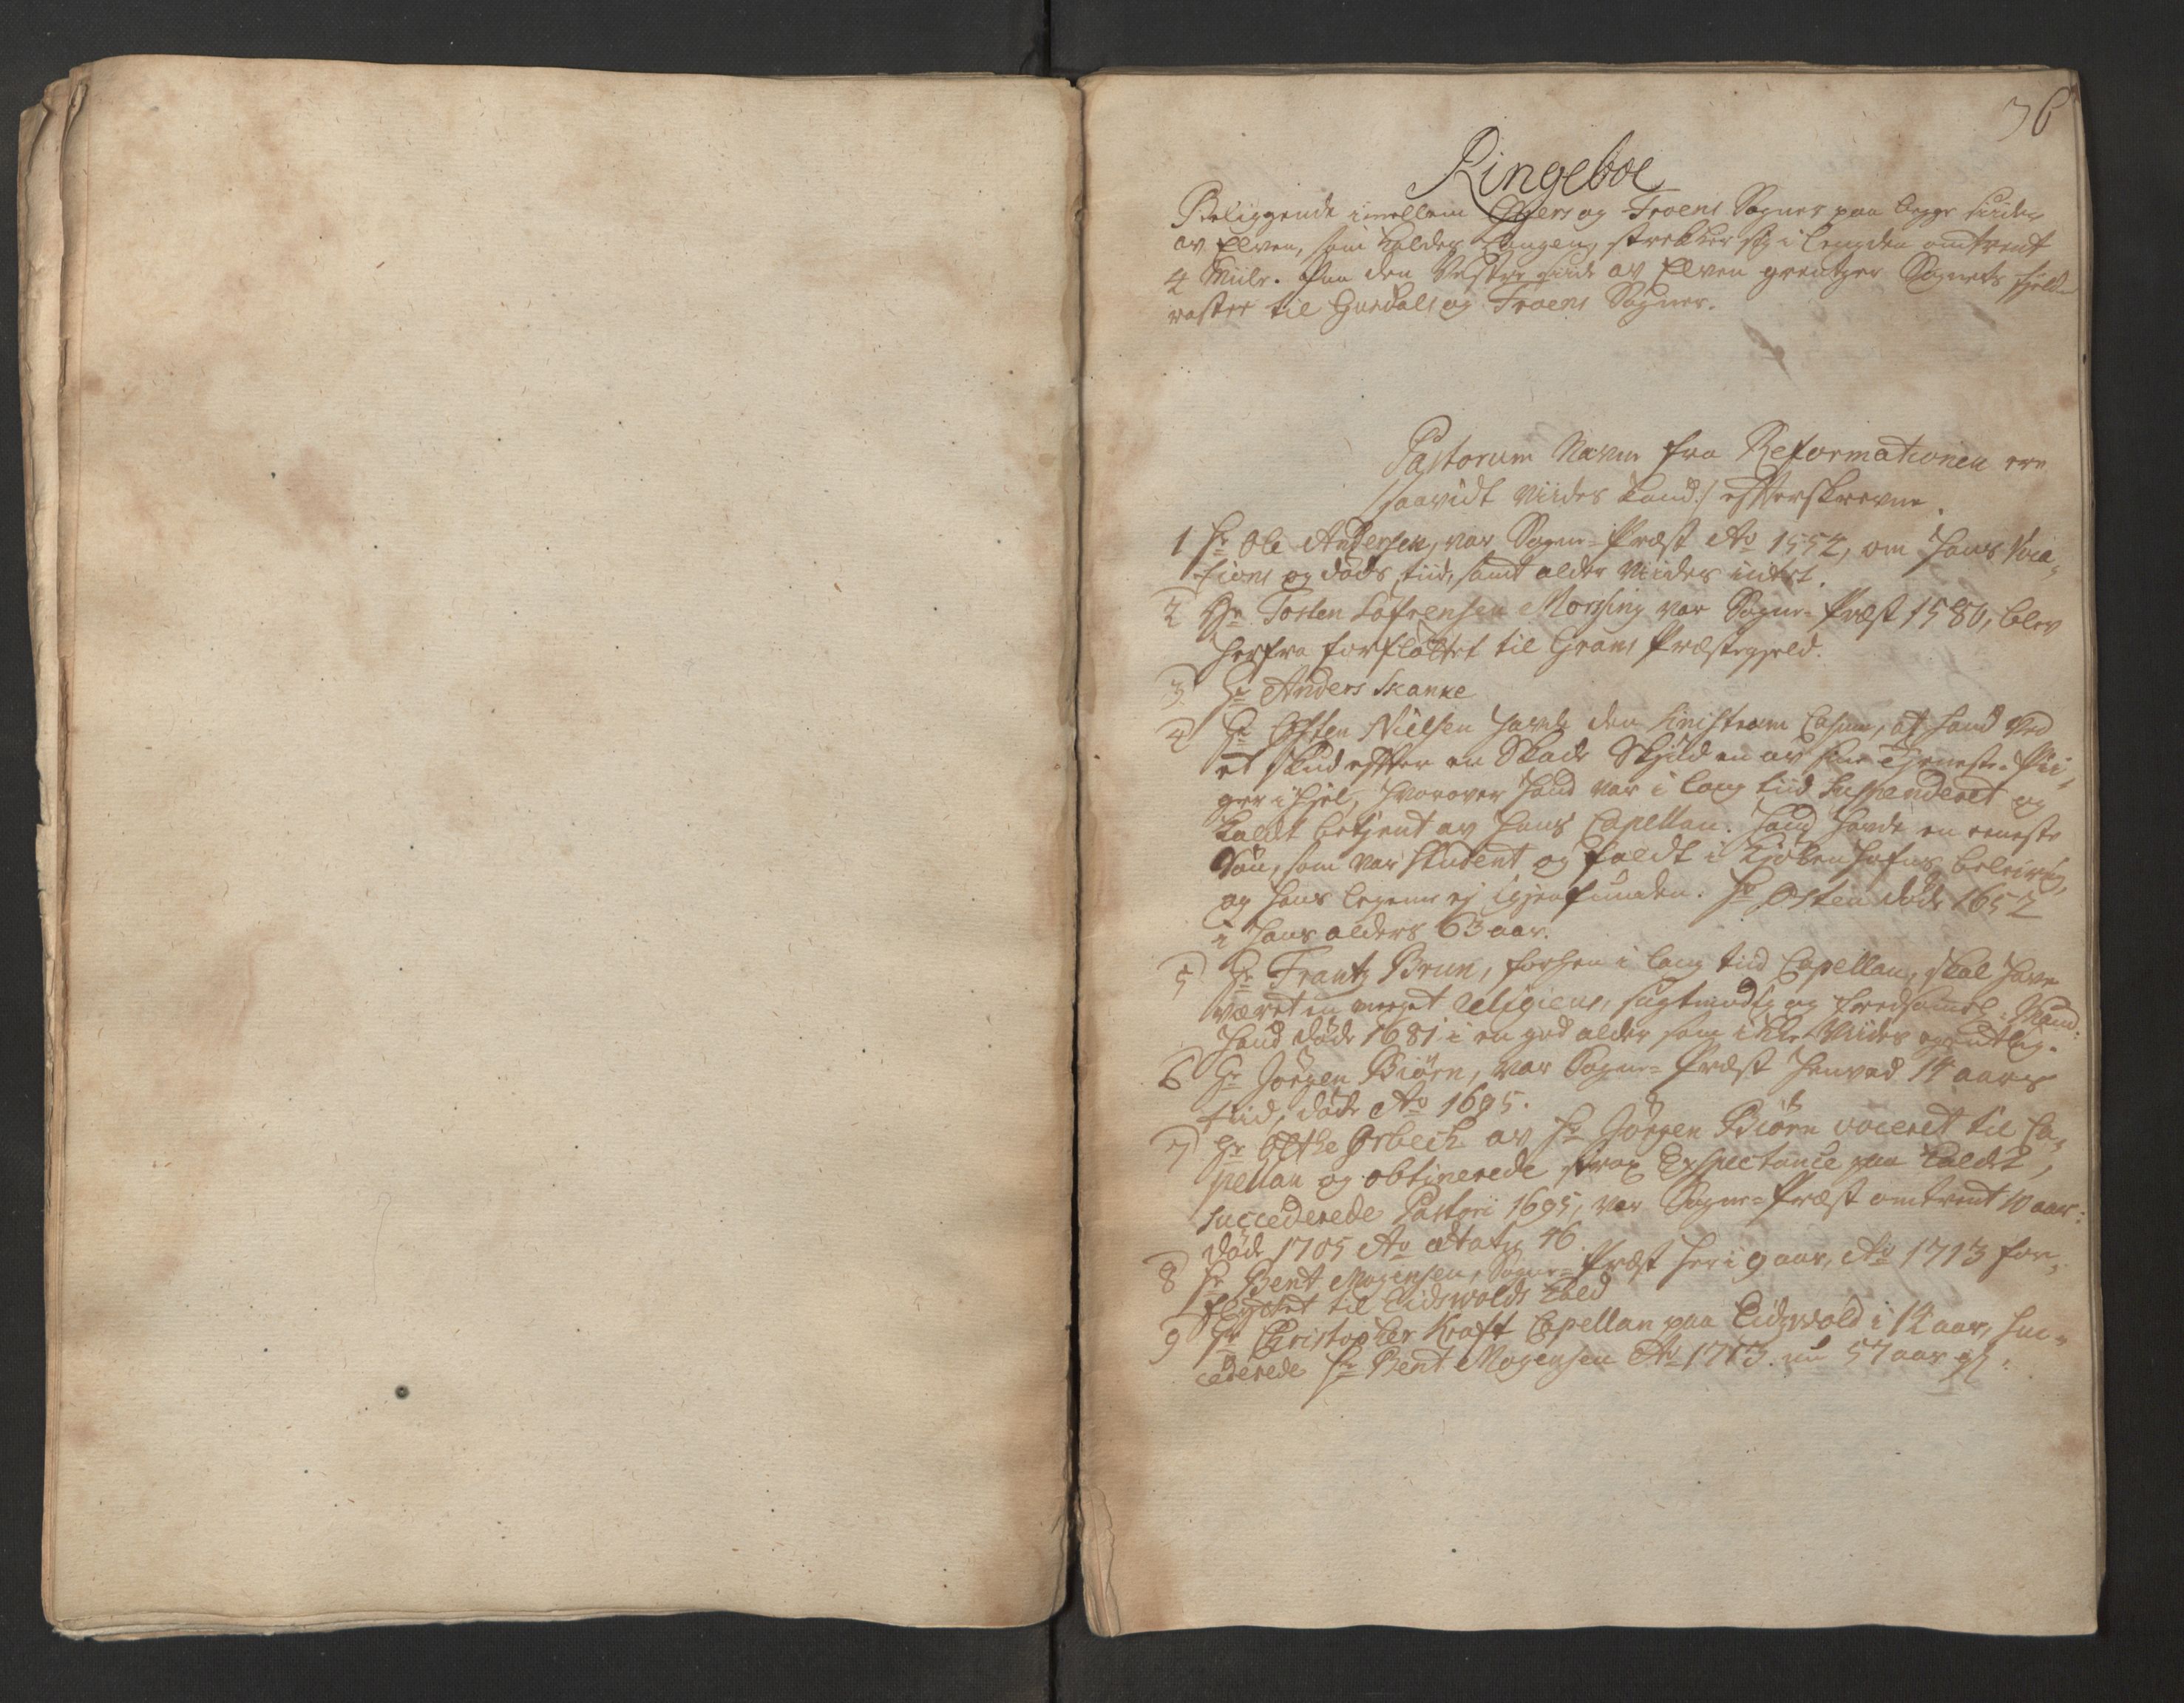 36
Ringeboe
Beliggende imellem Øyers og Froens Sogner paa begge siider
av Elven, som kaldes Laugen, strekker sig i lengden omtrent
4 Miile. Paa den Vestre siide av Elven grentzer Sognets fjeld
raster til Gusdals og Froens Sogner.
Pastorum Navne fra Reformationen ere
/:saavidt viides kand:/ efterskrevne.
1 Hr Ole Andersen, var Sogne-Præst Ao 1552, om hans Voca-
tions og døds tiid, samt alder viides intet.
2 Hr Tosten Lafrensen Morssing var Sogne-Præst 1580, blev
herfra forfløttet til Grans Præstegield.
3 Hr Anders Skanke
4 Hr Østen Nielsen havde den sinistram Casum, at hand ved
et skud efter en Skade Skjød en av sine Tjeneste-Pii-
ger ihjel, hvorover hand var i lang tiid suspenderet og
kaldet betjent av hans Capellan. hand havde en eeneste
Søn, som var Student og faldt i Kjøbenhafns beleiring,
og hans legeme ej igjenfunden. Hr Østen døde 1652
i hans alders 63 aar.
5 Hr Frantz Brun, forhen i lang tiid Capellan, skal have
været en meget religieus, sagtmodig og fredsomel. Mand.
hand døde 1681 i en god alder som ikke viides egentlig.
6 Hr Jørgen Biørn, var Sogne-Præst henved 14 aars
tiid, døde Ao 1695.
7 Hr Olthe Ørbech av Hr Jørgen Biørn voceret til Ca-
pellan og obtinerede strax Exspectance paa kaldet,
succederede Pastori 1695, var Sogne-Præst omtrent 10 aar:
døde 1705 Ao ætatis 46
8 Hr Bent Mogensen, Sogne-Præst her i 9 aar, Ao 1713 for-
flyttet til Eidswolds kald
9 Hr Christopher Kraft Capellan paa Eidswold i 14 aar, suc-
cederede Hr Bent Mogensen Ao 1713. nu 57 aar gl.